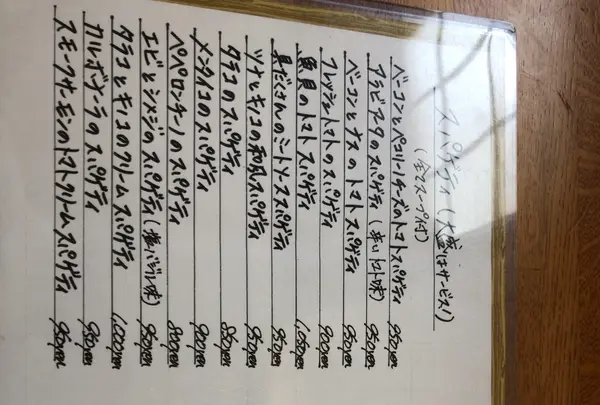 スパゲティ (大盛はサービス!)
(全てスープ付)
ベーコンとペコリーノチーズのトマトスパゲティ 950yen
アラビアータのスパゲティ (辛いトマト味) 950yen
ベーコンとナスのトマトスパゲティ 950yen
フレッシュトマトのスパゲティ 900yen
魚貝のトマトスパゲティ 1,050yen
具だくさんのミートソーススパゲティ 950yen
ツナとキノコの和風スパゲティ 950yen
タラコのスパゲティ 850yen
メンタイコのスパゲティ 900yen
ペペロンチーノのスパゲティ 800yen
エビとシメジのスパゲティ (塩バジル味) 950yen
タラコとキノコのクリームスパゲティ 1,000yen
カルボナーラのスパゲティ 950yen
スモークサーモンのトマトクリームスパゲティ 950yen